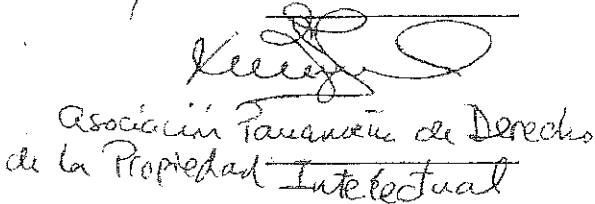 Asociación Panameña de Derecho
de la Propiedad Intelectual